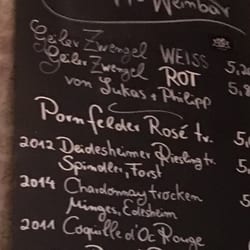 Weinbar
Geiler Zwengel WEISS 5,
Geiler Zwengel ROT 5,
von Lukas + Philipp
Pornfelder Rosé tr. 5
2012 Deidesheimer Riesling tr. 5
Spindler, Forst
2014 Chardonnay trocken
Minges, Edesheim
2011 Coquille d'Oc Rouge